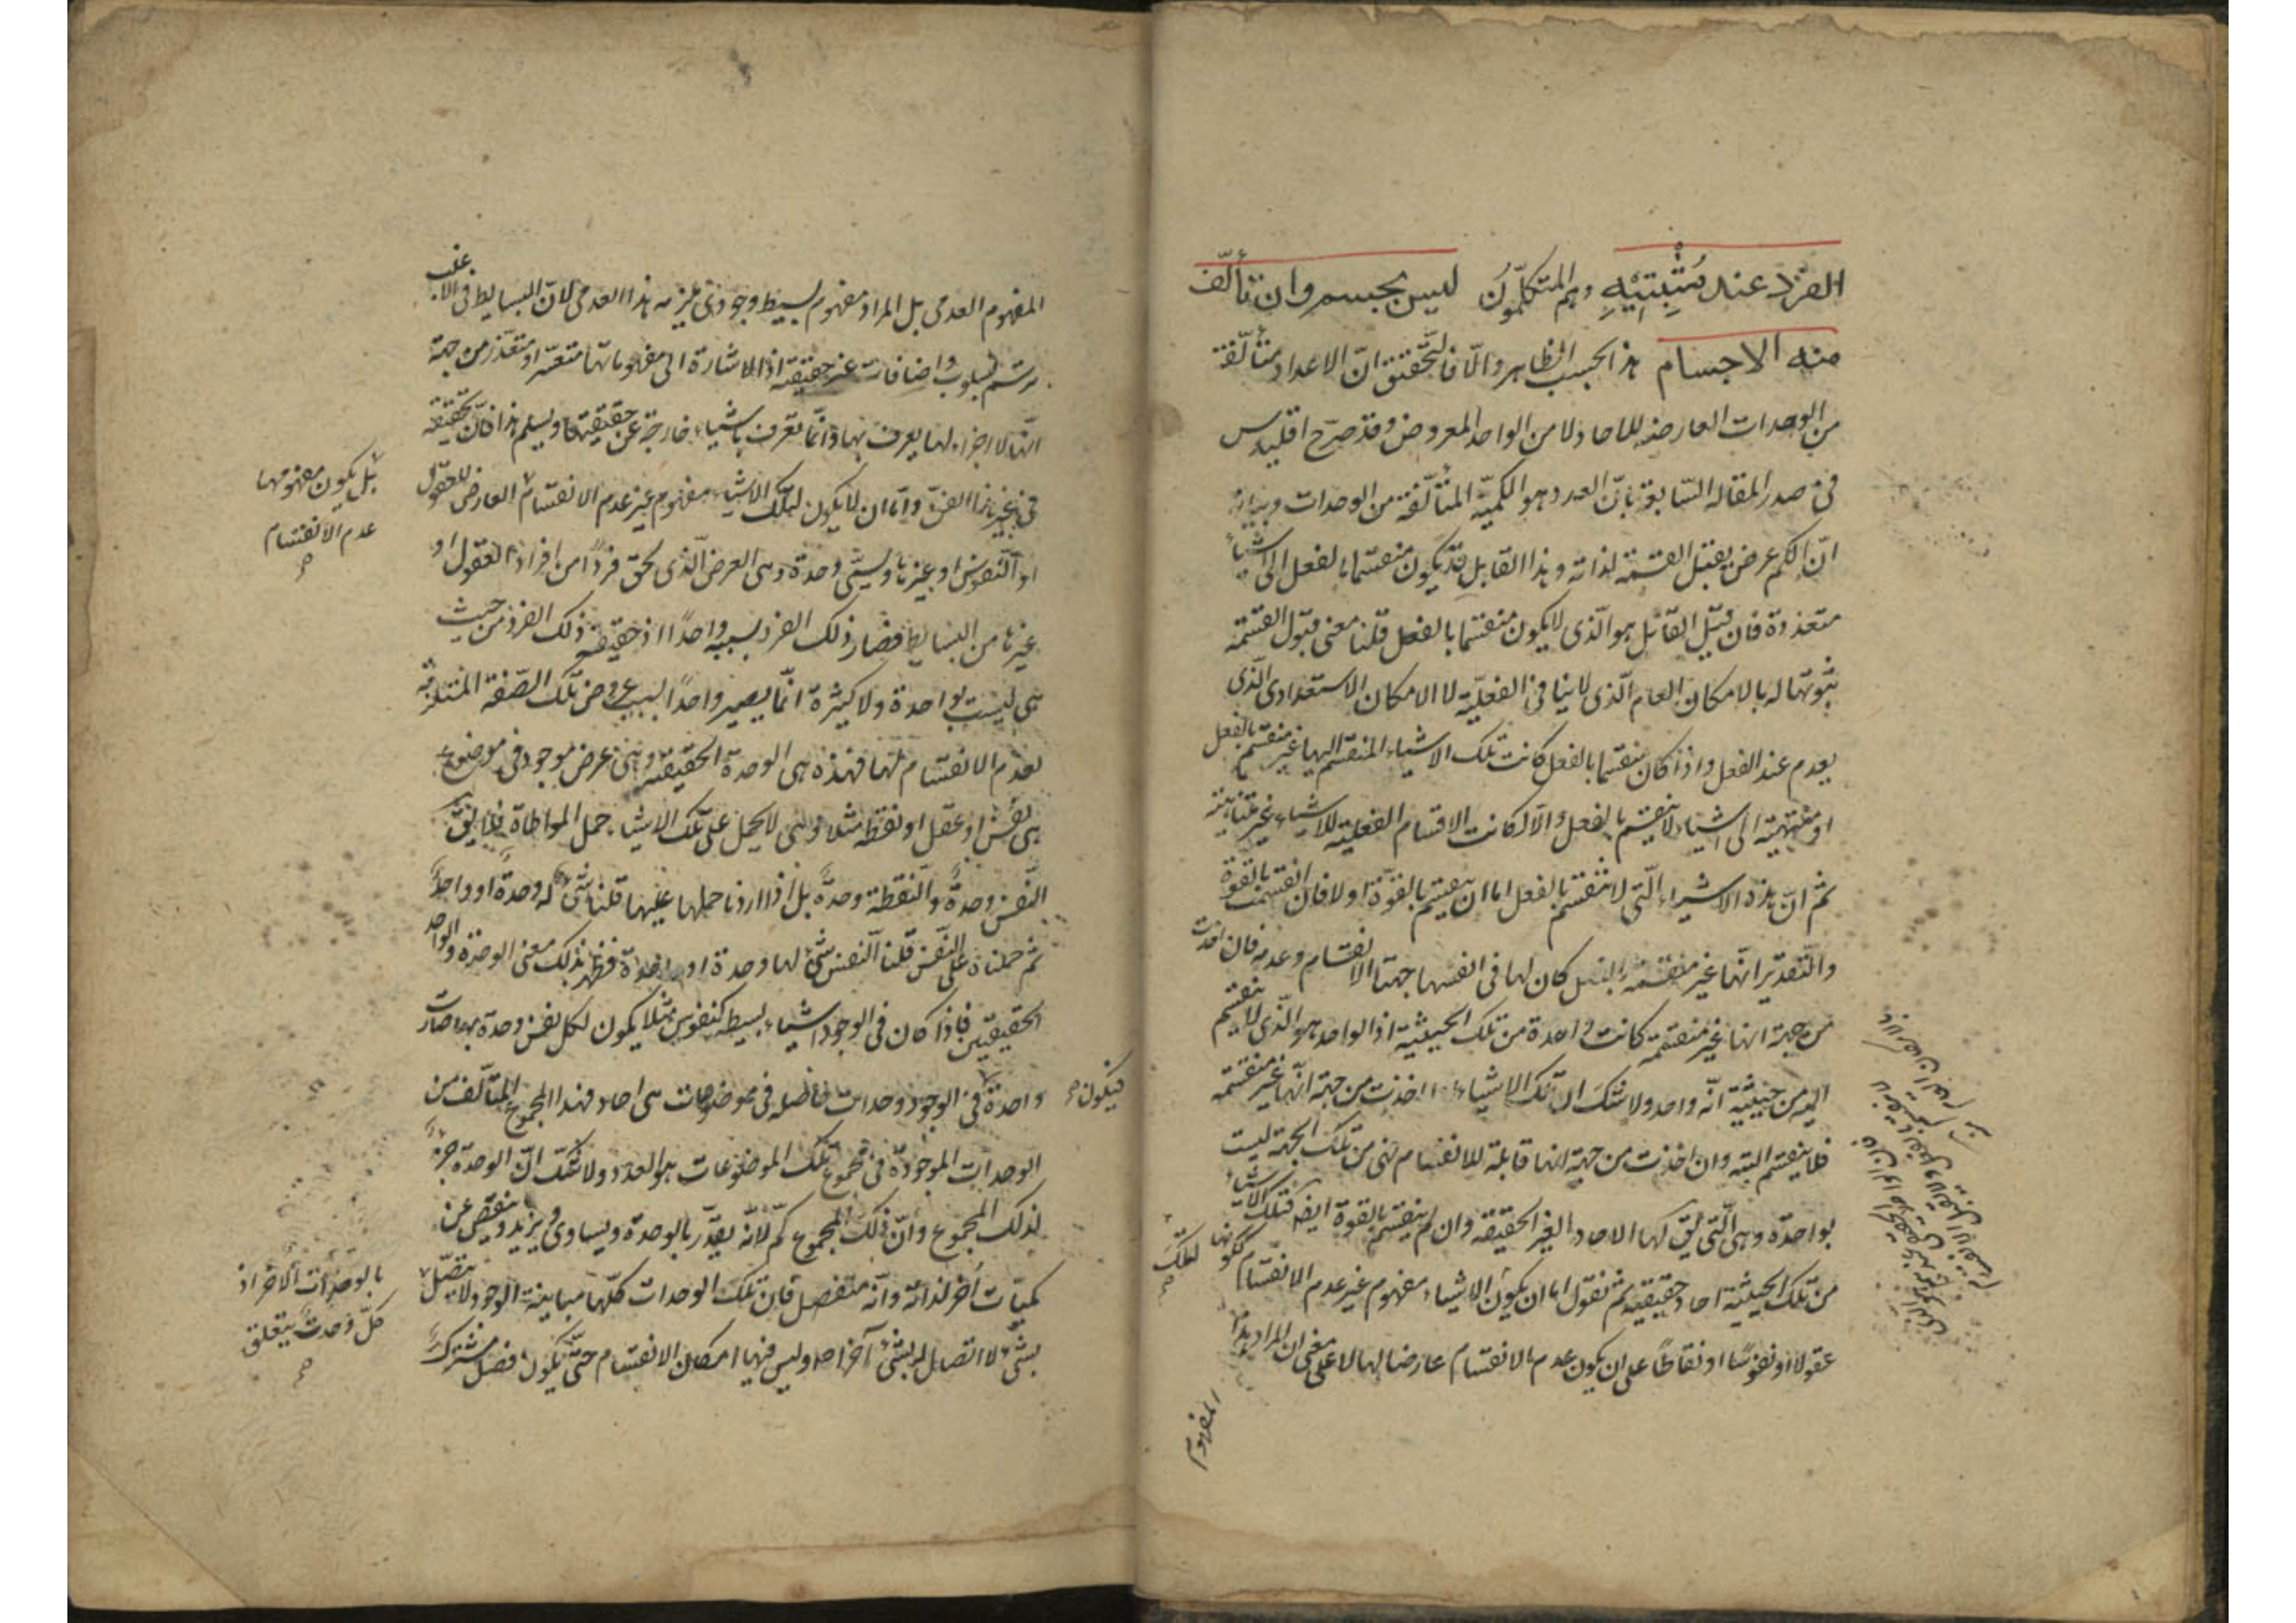 الفرد عند مُثْبِتِيْهِ وهم المتكلّمُونَ ليس بجسم وان تألّف
منه الاجسام هذا بحسب الظاهر والّا فالتّحقيق انّ الاعداد متألّفة
من الوحدات العارضه للاحاد لا من الواحد المعروض وقد صرّح اقليدس
فى صدر المقاله السّابعة بانّ العدد هو الكميّه المتألّفة من الوحدات وبيانه
انّ الكم عرض يقبل القسمة لذاته وهذا القابل قد يكون منقسما بالفعل الى اشياء
متعددة فان قيل القابل هو الّذى لا يكون منقسما بالفعل قلنا معنى قبول القسمة
ثبوتها له بالامكان العام الّذى لا ينافى الفعليّة لا الامكان الاستعدادى الّذى
يعدم عند الفعل واذا كان منقسما بالفعل كانت تلك الاشياء المنقسم اليها غير منقسم بالفعل
او منتهية الى اشياء لا ينقسم بالفعل والّا لكانت الاقسام الفعلية للاشياء غير متناهية
ثم انّ هذه الاشياء الّتى لا تنقسم بالفعل اما ان ينقسم بالقوّة او لا فان انقسمت بالقوة
والتقدير انّها غير منقسمة بالفعل كان لها فى انفسها جهتا الانقسام وعدمه فان اخذت
من جهة انها غير منقسمة كانت واحدة من تلك الحيثية اذ الواحد هو الّذى لا ينقسم
من حيثيّة انّه واحد ولا شك ان تلك الاشياء اذا اخذت من جهة انّها غير منقسمة
فلا ينقسم البته وان اخذت من جهة انها قابلة للانقسام فهى من تلك الجهة ليست
بواحدة وهى الّتى يقّ لها الاحاد الغير الحقيقة وان لم ينقسم بالقوة ايضه فتلك الاشياء
من تلك الحيثية احاد حقيقيه ثم نقول اما ان يكون الاشياء مفهوم غير عدم الانقسام ككونها
لتلك
عقولا او نفوسًا او نقاطًا على ان يكون عدم الانقسام عارضا لها لا على معنى ان المراد بهذا
المفهوم
المفهوم العدمى بل المراد مفهوم بسيط وجودى يلزمه هذا العدمى لانّ البسايط فى الاغلب
يرسم بسلوب واضافات عن حقيقته اذ الاشارة الى مفهوماتها متعسّر او متعذّر من جهة
انّها لا اجزاء لها يعرف بها وانّما تعرف باشياء خارجة عن حقيقتها وليسلم هذا فانّ تحقيقه
فى غير هذا الفنّ وامّا ان لا يكون لتلك الاشياء مفهوم غير عدم الانقسام العارض للعقول
بل يكون مفهومها
عدم الانقسام
او النّفوس او غيرها ويسمّى وحدة وهى العرض الّذى لحق فردًا من افراد العقول او
غيرها من البسايط فصار ذلك الفرد بسببه واحدًا اذ حقيقة ذلك الفرد من حيث
هى ليست بواحدة ولا كثيرة انّما يصير واحدًا بسبب عروض تلك الصّفة المستلزمة
لعدم الانقسام لها فهذه هى الوحدة الحقيقية وهى عرض موجود فى موضوع
هى نفس او عقل او نقطه مثلا وهى لا يحمل على تلك الاشياء حمل المواطاة فلا يقّ
النّفس وحدةٌ والنّقطة وحدةٌ بل اذا اردنا حملها عليها قلنا شئ له وحدة او واحدٌ
ثم حملناه على النّفس قلنا النّفس شئ لها وحدة او واحدة فظهر بذلك معنى الوحدة والواحد
الحقيقيّين فاذا كان فى الوجود اشياء بسيطه كنفوس مثلا يكون لكل نفس وحدة بها صارت
واحدة فى الوجود وحدات فاضله فى موضوعات هى احاد فهذا المجموع المتألّف من
فيكون
الوحدات الموجودة فى مجموع تلك الموضوعات هو العدد ولا شكّ انّ الوحدة جزءٌ
لذلك المجموع وانّ ذلك المجموع كمّ لانّه يقدّر بالوحدة ويساوى ويزيد وينقص عن
كميّات اُخر لذاته وانّه منفصل فان تلك الوحدات كلّها مباينة الوجود لا يتصل
بالوحدات الاخر اذ
كلّ وحدة يتعلق
بشئ لا اتصال له بشئ آخر اصلا وليس فيها امكان الانقسام حتّى يكون فصل مشترك